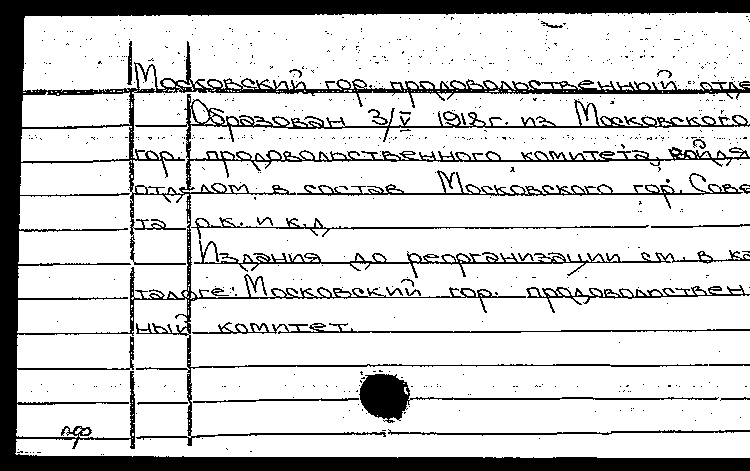 Московский гор. продовольственный отде
Образован 3/V 1918 г. из Московского
гор. продовольственного комитета, войдя
отделом в состав Московского гор. Сове
та р.к. и к.д
Издания до реорганизации см. в ка
талоге: Московский гор. продовольствен
ный комитет.